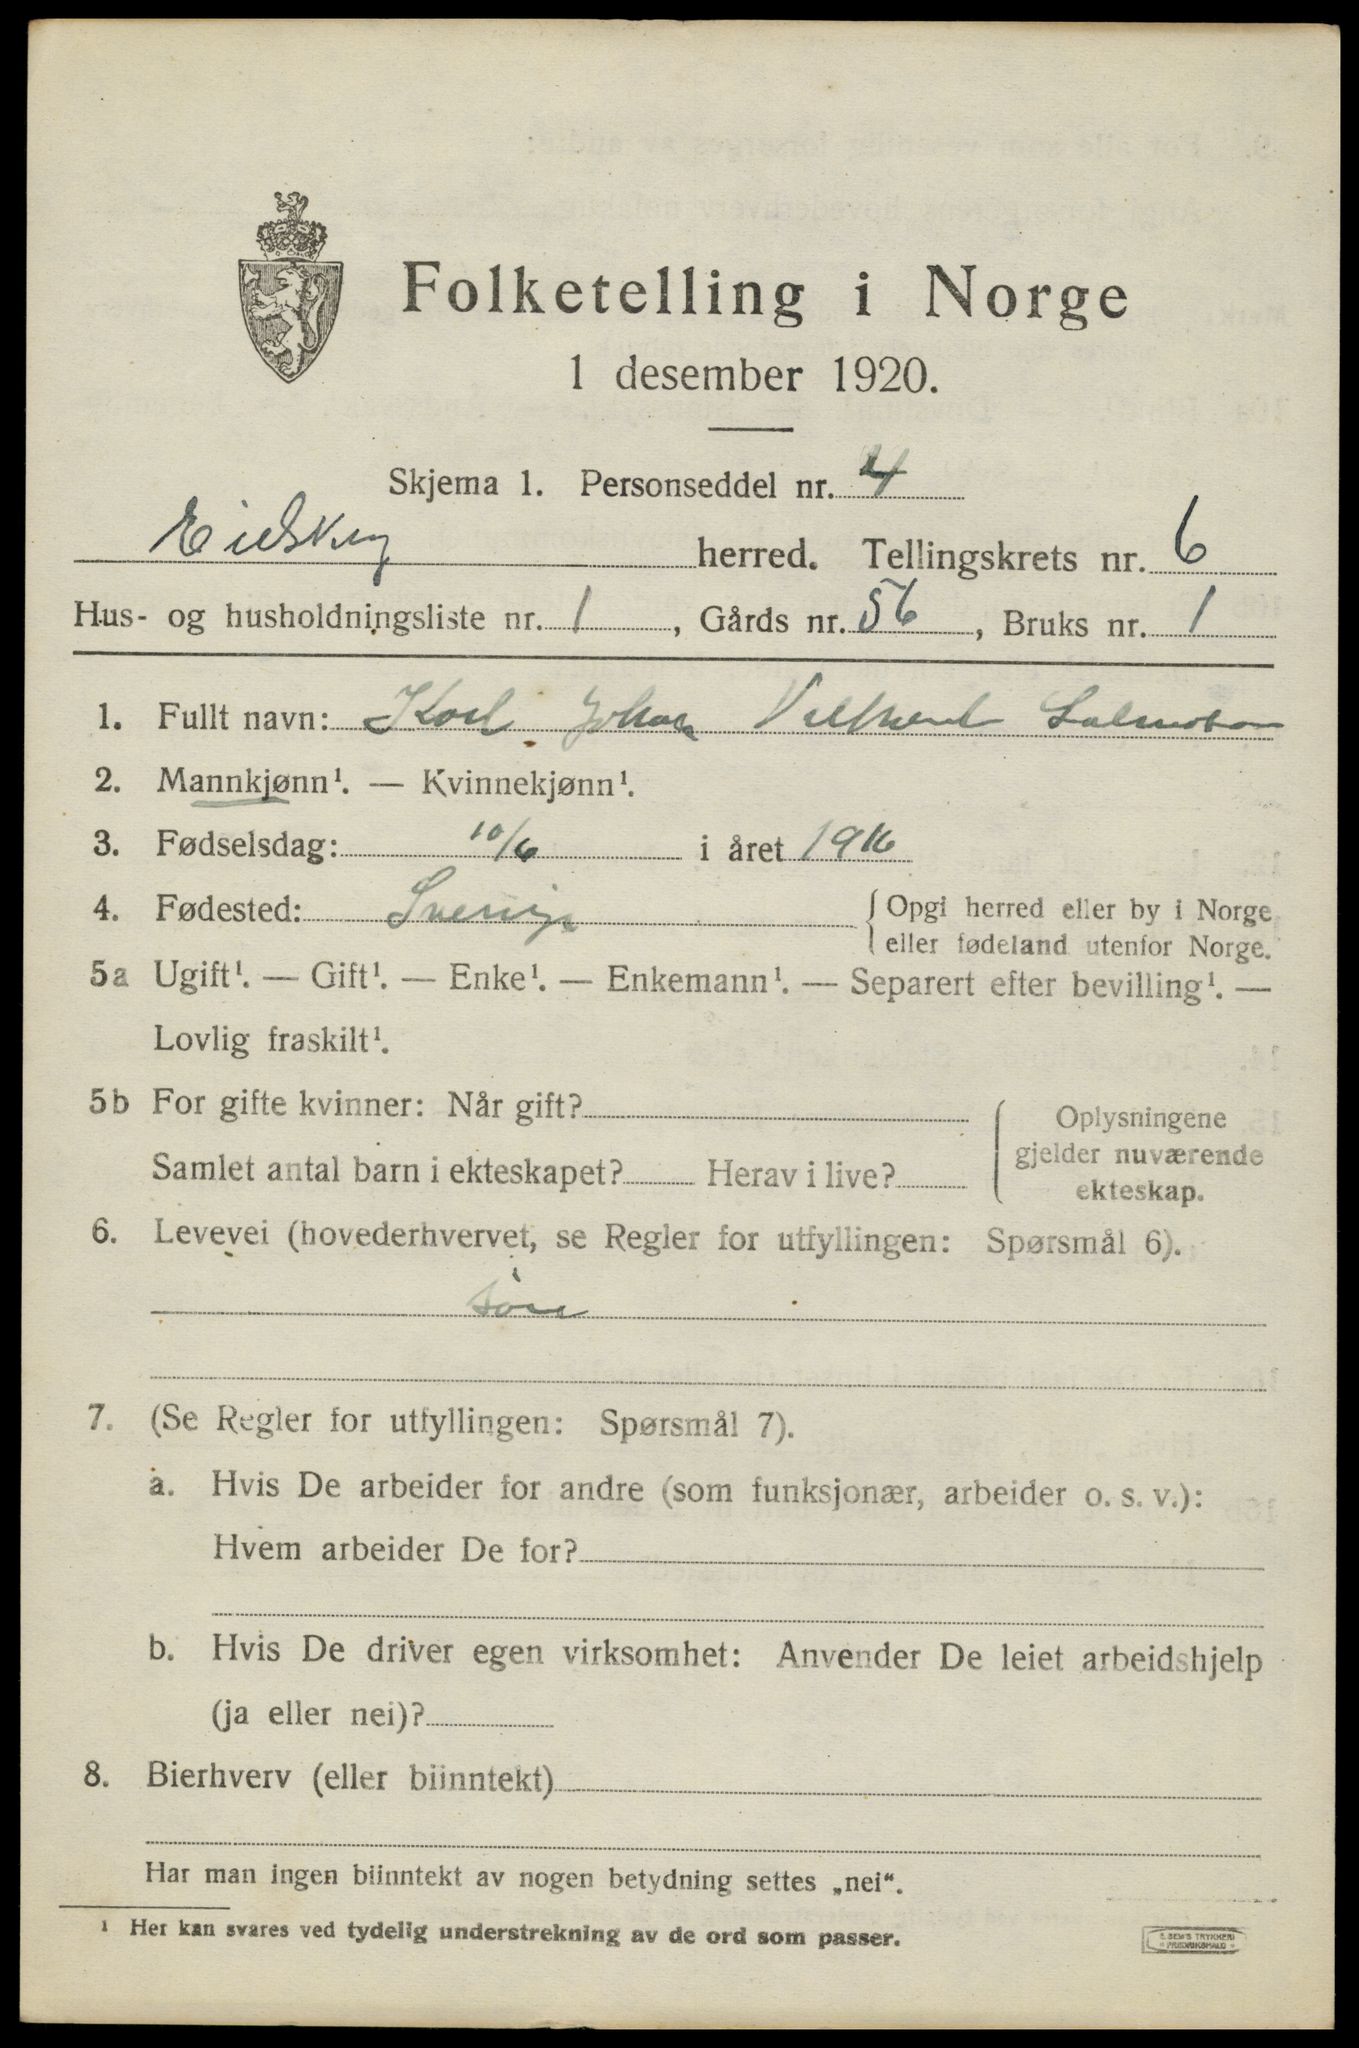 Folketelling i Norge
1 desember 1920.
Skjema 1. Personseddel nr. 4
Eidskog herred. Tellingskrets nr. 6
Hus- og husholdningsliste nr. 1, Gårds nr. 56, Bruks nr. 1
1. Fullt navn: Karl Johan
2. Mannkjønn¹. — Kvinnekjønn¹.
3. Fødselsdag: 10/6 i året 1916
4. Fødested: Sverige { Opgi herred eller by i Norge
eller fødeland utenfor Norge.
5a Ugift¹. — Gift¹. — Enke¹. — Enkemann¹. — Separert efter bevilling¹. —
Lovlig fraskilt¹.
5b For gifte kvinner: Når gift?
Samlet antal barn i ekteskapet? Herav i live?
Oplysningene
gjelder nuværende
ekteskap.
6. Levevei (hovederhvervet, se Regler for utfyllingen: Spørsmål 6).
sön
7. (Se Regler for utfyllingen: Spørsmål 7).
a. Hvis De arbeider for andre (som funksjonær, arbeider o. s. v.):
Hvem arbeider De for?
b. Hvis De driver egen virksomhet: Anvender De leiet arbeidshjelp
(ja eller nei)?
8. Bierhverv (eller biinntekt)
Har man ingen biinntekt av nogen betydning settes „nei“.
¹ Her kan svares ved tydelig understrekning av de ord som passer.
E. SEM'S TRYKKERI
FREDRIKSHALD